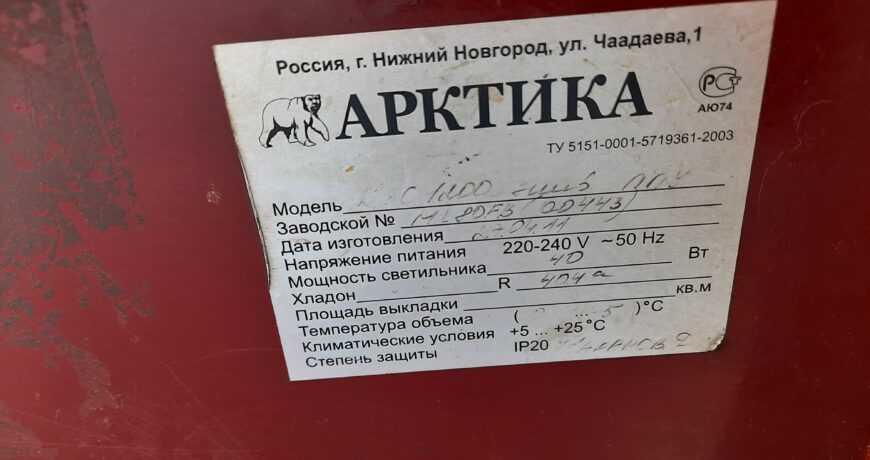 Россия, г. Нижний Новгород, ул. Чаадаева,1
АРКТИКА
РСТ
АЮ74
ТУ 5151-0001-5719361-2003
Модель 1200
Заводской №
Дата изготовления 27.04.11
Напряжение питания 220-240 V ~50 Hz
Мощность светильника 40 Вт
Хладон R 404a
Площадь выкладки кв.м
Температура объема ( ... 5 )°C
Климатические условия +5 ... +25°C
Степень защиты IP20